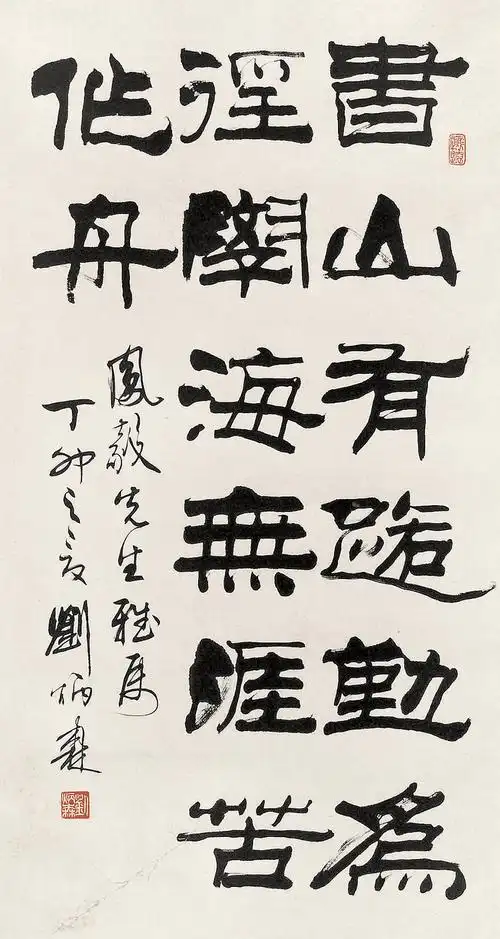 書山有路勤為
徑學海無涯苦
作舟
鳳先生雅屬
丁卯之夏劉炳森
劉炳森